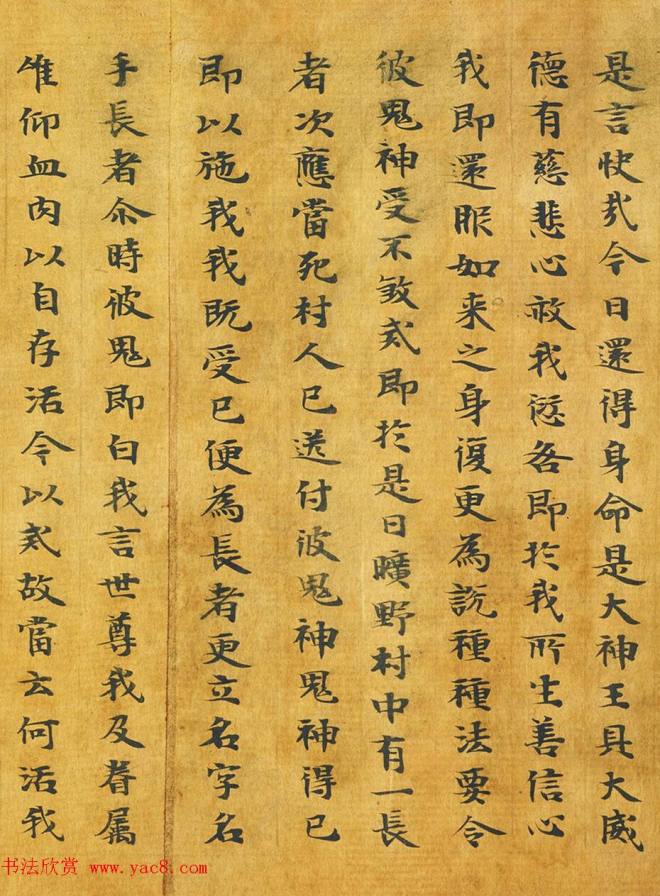 是言快哉今日還得身命是大神王具大威
德有慈悲心赦我愆各即於我所生善信心
我即還服如来之身復更為説種種法要令
彼鬼神受不煞戒即於是日曠野村中有一長
者次應當死村人已送付彼鬼神鬼神得已
即以施我我既受已便為長者更立名字名
手長者尒時彼鬼即白我言世尊我及眷屬
唯仰血肉以自存活今以戒故當云何活我
书法欣赏 www.yac8.com